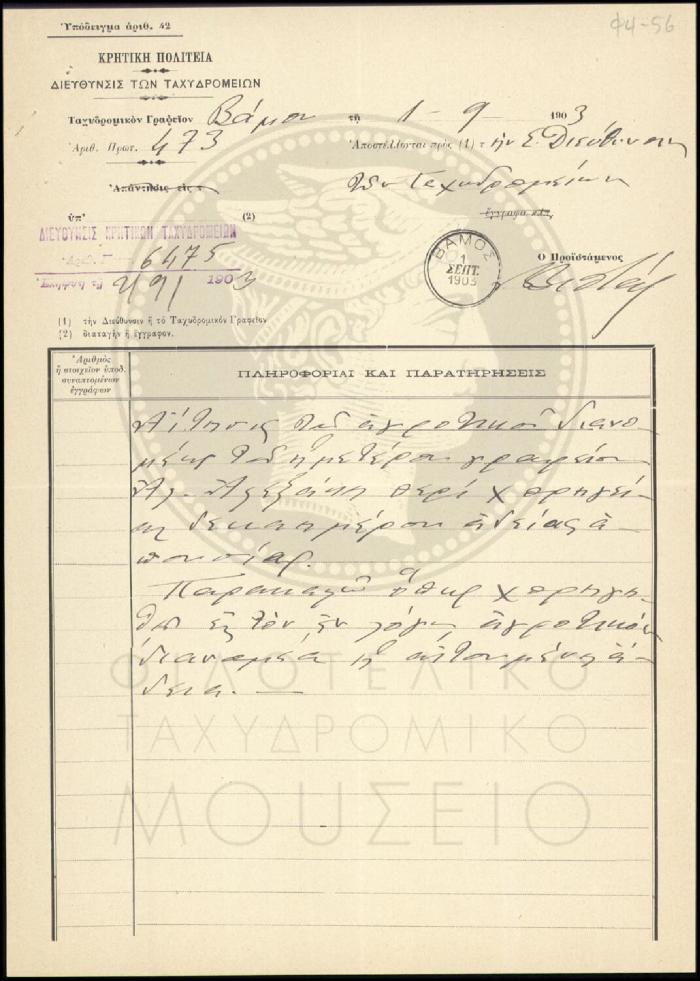 Ὑπόδειγμα ἀριθ. 42
Φ4-56
ΚΡΗΤΙΚΗ ΠΟΛΙΤΕΙΑ
ΔΙΕΥΘΥΝΣΙΣ ΤΩΝ ΤΑΧΥΔΡΟΜΕΙΩΝ
Ταχυδρομικὸν Γραφεῖον Βάμου τῇ 1-9 1903
Ἀριθ. Πρωτ. 473 Ἀποστέλλονται πρὸς (1) τὴν Σ. Διεύθυνσιν
Ἀπάντησις εἰς τ τῶν Ταχυδρομείων
ὑπ' (2) ἔγγραφα κλπ.
ΔΙΕΥΘΥΝΣΙΣ ΚΡΗΤΙΚΩΝ ΤΑΧΥΔΡΟΜΕΙΩΝ
6475
2/9/ 1903
ΒΑΜΟΣ
1
ΣΕΠΤ.
1903
Ὁ Προϊστάμενος
(1) τὴν Διεύθυνσιν ἢ τὸ Ταχυδρομικὸν Γραφεῖον
(2) διαταγὴν ἢ ἔγγραφον.
Ἀριθμὸς
ἢ στοιχεῖον ὑποδ.
συναπτομένων
ἐγγράφων
ΠΛΗΡΟΦΟΡΙΑΙ ΚΑΙ ΠΑΡΑΤΗΡΗΣΕΙΣ
Αἴτησις τοῦ ἀγροτικοῦ διανο-
μέως τοῦ ἡμετέρου γραφείου
περὶ χορηγεί-
ας δεκαημέρου ἀδείας ἀ-
πουσίας.
Παρακαλῶ ὅπως χορηγη-
θῇ εἰς τὸν ἐν λόγῳ ἀγροτικὸν
διανομέα ἡ αἰτουμένη ἄ-
δεια. —
ΦΙΛΟΤΕΛΙΚΟ
ΤΑΧΥΔΡΟΜΙΚΟ
ΜΟΥΣΕΙΟ